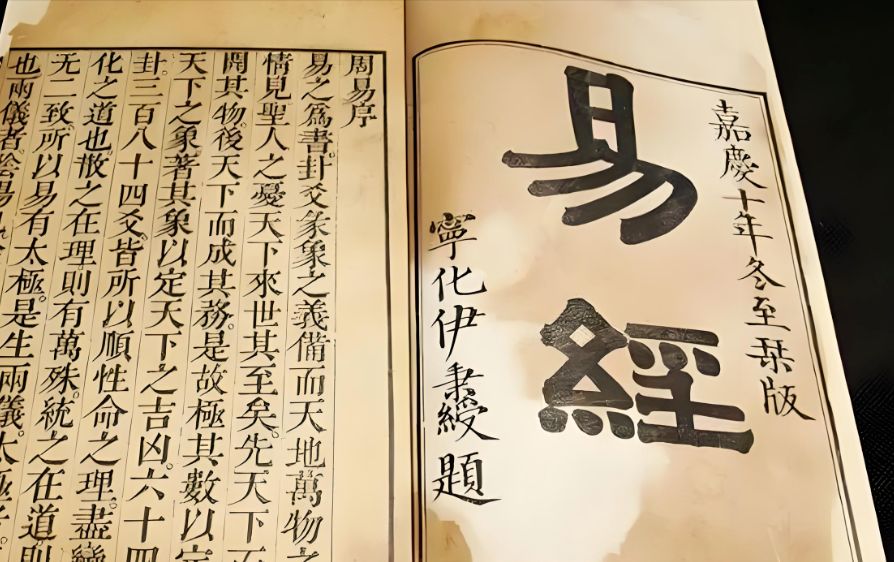 嘉慶十年冬至栞版
易經
寧化伊秉綬題
周易序
易之爲書。卦爻彖象之義備而天地萬物之
情見聖人之憂天下來世其至矣。先天下而
開其物。後天下而成其務。是故極其數以定
天下之象著其象以定天下之吉凶。六十四
卦。三百八十四爻。皆所以順性命之理。盡變
化之道也。散之在理。則有萬殊。統之在道。則
无二致。所以易有太極。是生兩儀。太極者。
也。兩儀者。陰陽